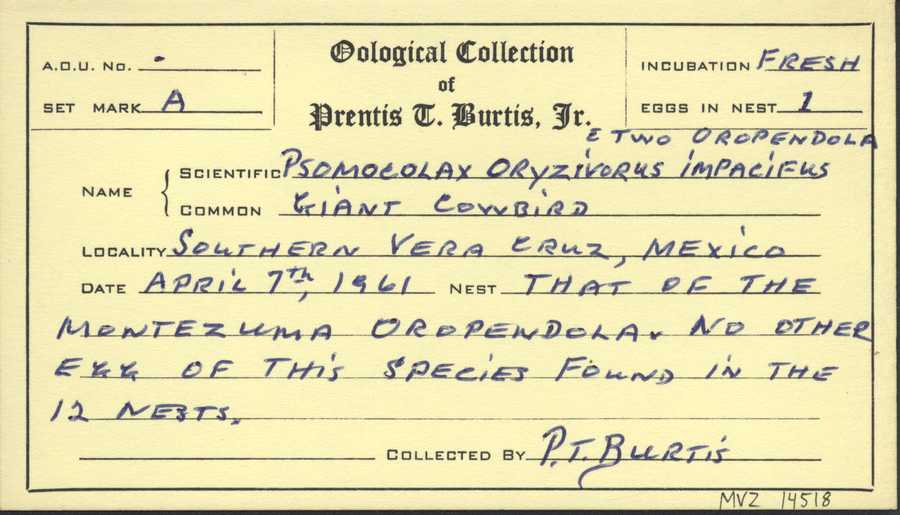 A.O.U. No. -
Oological Collection
of
Prentis T. Burtis, Jr.
INCUBATION FRESH
SET MARK A
EGGS IN NEST 1
& TWO OROPENDOLA
NAME
SCIENTIFIC PSOMOCOLAX ORYZIVORUS IMPACIFUS
COMMON GIANT COWBIRD
LOCALITY SOUTHERN VERA CRUZ, MEXICO
DATE APRIL 7th, 1961 NEST THAT OF THE
MONTEZUMA OROPENDOLA. NO OTHER
EGG OF THIS SPECIES FOUND IN THE
12 NESTS.
COLLECTED BY P.T. BURTIS
MVZ 14518